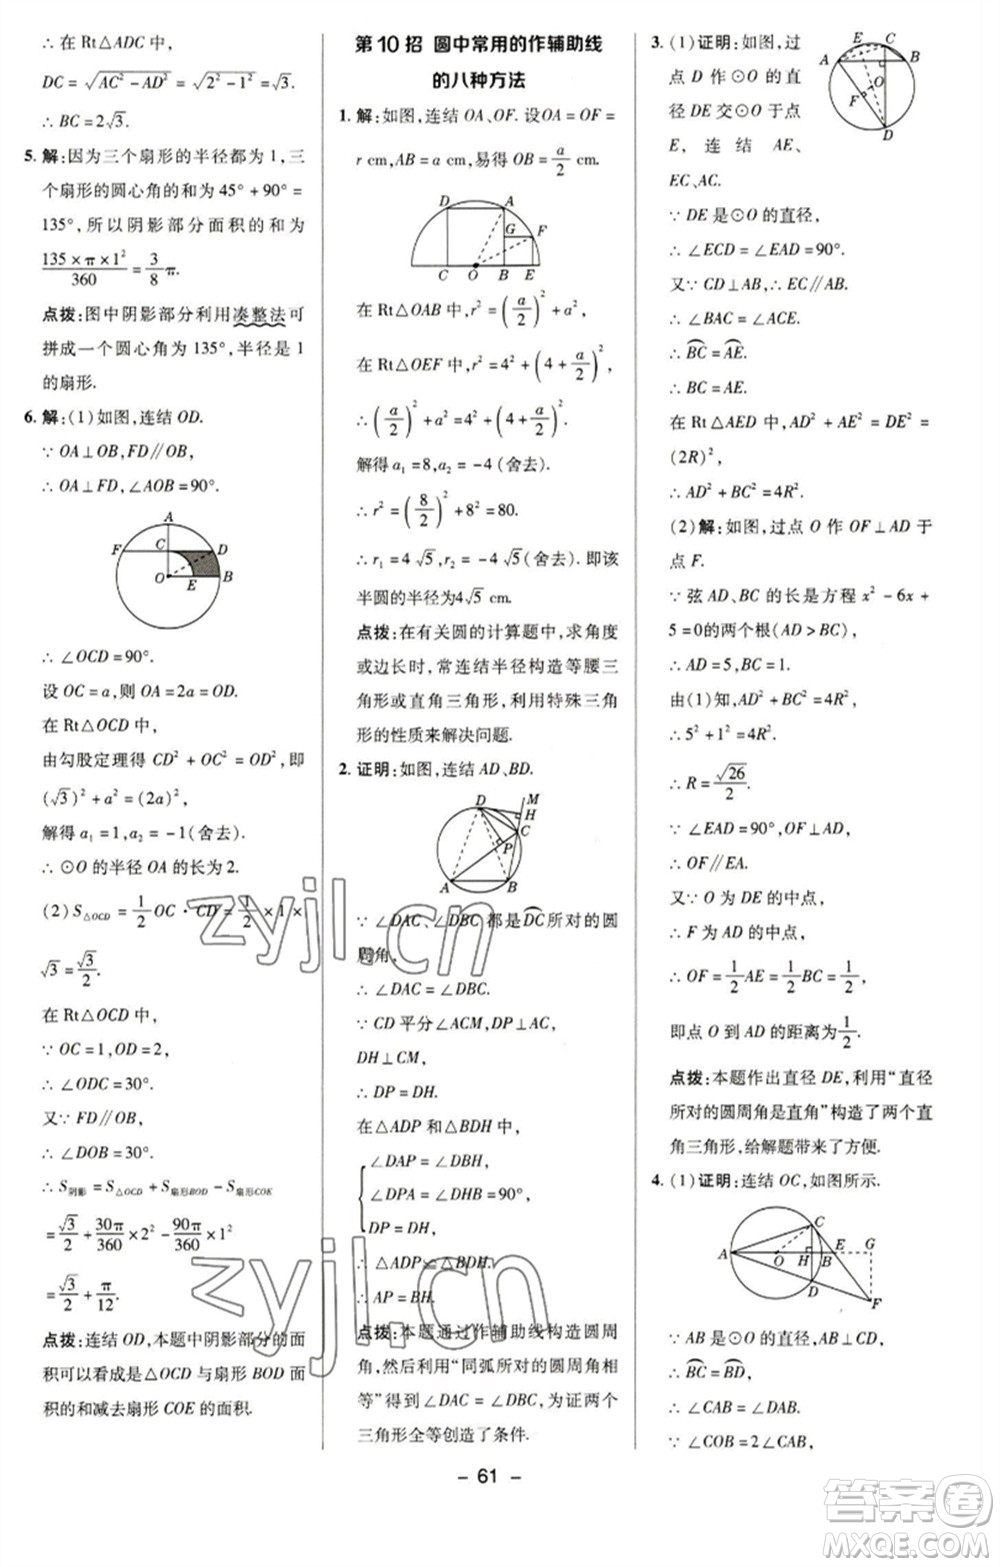 ∴ 在 Rt△ADC 中,
DC = √(AC² - AD²) = √(2² - 1²) = √3.
∴ BC = 2√3.
5. 解:因为三个扇形的半径都为 1,三
个扇形的圆心角的和为 45° + 90° =
135°,所以阴影部分面积的和为
(135 × π × 1²)/360 = 3/8 π.
点拨:图中阴影部分利用凑整法可
拼成一个圆心角为 135°,半径是 1
的扇形.
6. 解:(1)如图,连结 OD.
∵ OA⊥OB,FD∥OB,
∴ OA⊥FD,∠AOB = 90°.
A
F C D
O E B
∴ ∠OCD = 90°.
设 OC = a,则 OA = 2a = OD.
在 Rt△OCD 中,
由勾股定理得 CD² + OC² = OD²,即
(√3)² + a² = (2a)²,
解得 a₁ = 1,a₂ = -1(舍去).
∴ ⊙O 的半径 OA 的长为 2.
(2) S△OCD = 1/2 OC · CD = 1/2 × 1 ×
√3 = √3/2.
在 Rt△OCD 中,
∵ OC = 1,OD = 2,
∴ ∠ODC = 30°.
又∵ FD∥OB,
∴ ∠DOB = 30°.
∴ S阴影 = S△OCD + S扇形BOD - S扇形COE
= √3/2 + 30π/360 × 2² - 90π/360 × 1²
= √3/2 + π/12.
点拨:连结 OD,本题中阴影部分的面
积可以看成是△OCD 与扇形 BOD 面
积的和减去扇形 COE 的面积.
第 10 招 圆中常用的作辅助线
的八种方法
1. 解:如图,连结 OA、OF. 设 OA = OF =
r cm,AB = a cm,易得 OB = a/2 cm.
D A
G F
C O B E
在 Rt△OAB 中,r² = (a/2)² + a²,
在 Rt△OEF 中,r² = 4² + (4 + a/2)²,
∴ (a/2)² + a² = 4² + (4 + a/2)².
解得 a₁ = 8,a₂ = -4(舍去).
∴ r² = (8/2)² + 8² = 80.
∴ r₁ = 4√5,r₂ = -4√5(舍去). 即该
半圆的半径为4√5 cm.
点拨:在有关圆的计算题中,求角度
或边长时,常连结半径构造等腰三
角形或直角三角形,利用特殊三角
形的性质来解决问题.
2. 证明:如图,连结 AD、BD.
D M
H
C
P
A B
∵ ∠DAC、∠DBC 都是DC所对的圆
周角,
∴ ∠DAC = ∠DBC.
∵ CD 平分∠ACM,DP⊥AC,
DH⊥CM,
∴ DP = DH.
在△ADP 和△BDH 中,
∠DAP = ∠DBH,
∠DPA = ∠DHB = 90°,
DP = DH,
∴ △ADP≌△BDH.
∴ AP = BH.
点拨:本题通过作辅助线构造圆周
角,然后利用“同弧所对的圆周角相
等”得到∠DAC = ∠DBC,为证两个
三角形全等创造了条件.
3. (1)证明:如图,过
点 D 作⊙O 的直
径 DE 交⊙O 于点
E,连结 AE、
EC、AC.
E C
A B
O
F
D
∵ DE 是⊙O 的直径,
∴ ∠ECD = ∠EAD = 90°.
又∵ CD⊥AB,∴ EC∥AB.
∴ ∠BAC = ∠ACE.
∴ BC = AE.
∴ BC = AE.
在 Rt△AED 中,AD² + AE² = DE² =
(2R)²,
∴ AD² + BC² = 4R².
(2)解:如图,过点 O 作 OF⊥AD 于
点 F.
∵ 弦 AD、BC 的长是方程 x² - 6x +
5 = 0的两个根(AD > BC),
∴ AD = 5,BC = 1.
由(1)知,AD² + BC² = 4R²,
∴ 5² + 1² = 4R².
∴ R = √26/2.
∵ ∠EAD = 90°,OF⊥AD,
∴ OF∥EA.
又∵ O 为 DE 的中点,
∴ F 为 AD 的中点,
∴ OF = 1/2 AE = 1/2 BC = 1/2,
即点 O 到 AD 的距离为1/2.
点拨:本题作出直径 DE,利用“直径
所对的圆周角是直角”构造了两个直
角三角形,给解题带来了方便.
4. (1)证明:连结 OC,如图所示.
C
A O H B E G
D
F
∵ AB 是⊙O 的直径,CD⊥AB,
∴ BC = BD,
∴ ∠CAB = ∠BAD.
∵ ∠COB = 2∠CAB,
- 61 -
zyjl.cn
zyjl.cn
答案圈
MXQE.COM